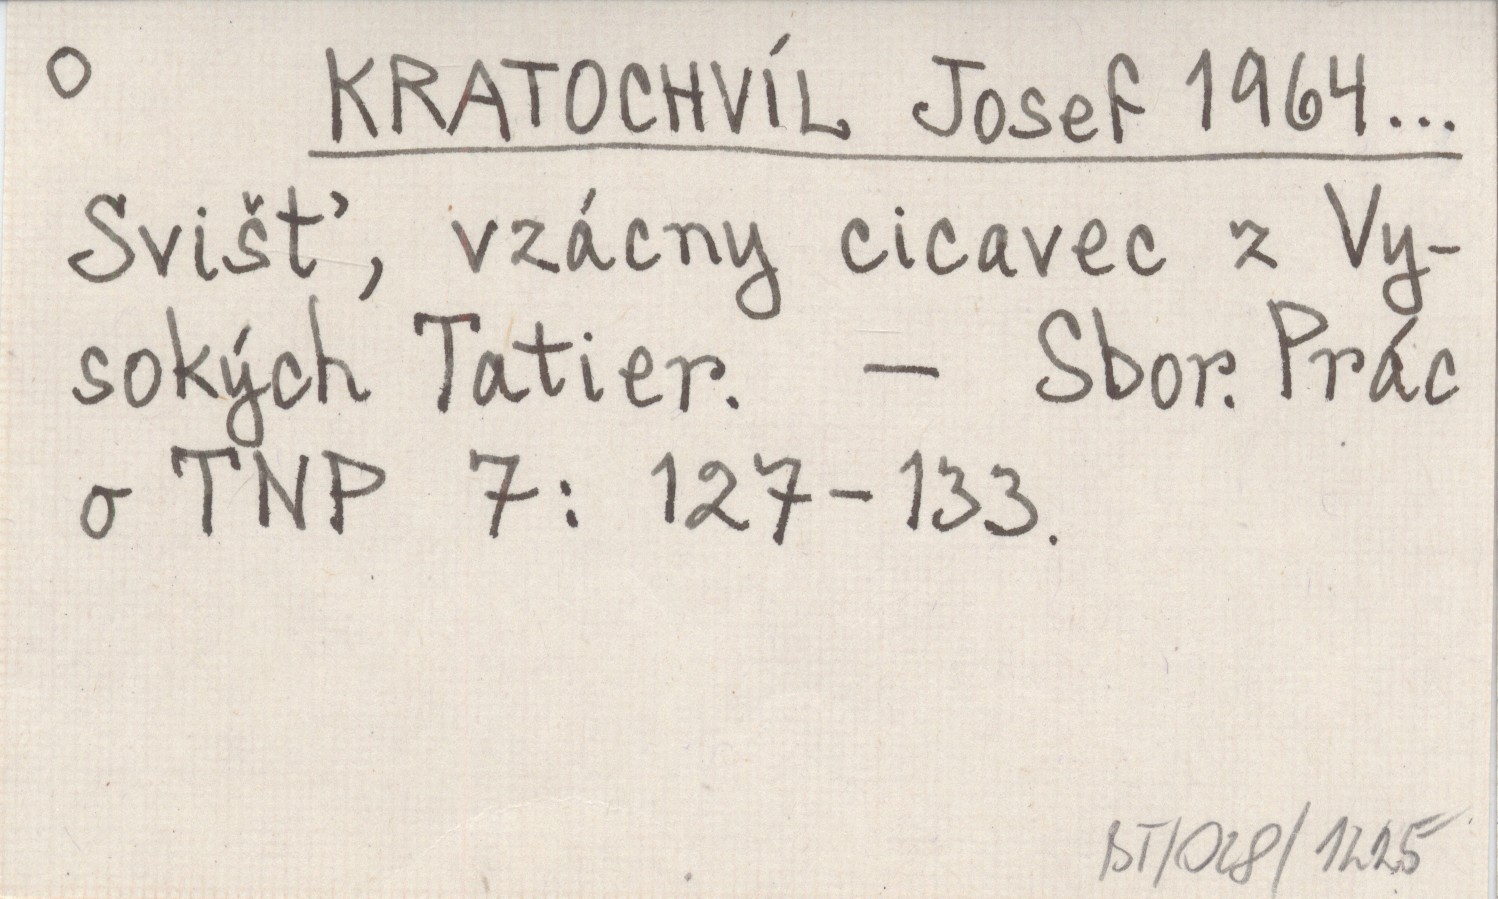 o KRATOCHVÍL Josef 1964...
Svišť, vzácny cicavec z Vy-
sokých Tatier. — Sbor. Prác
o TNP 7: 127-133.
BT/028/1225